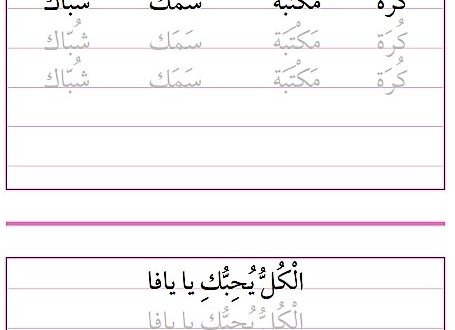 كُرَة مَكْتَبَة سَمَك شُبّاك
كُرَة مَكْتَبَة سَمَك شُبّاك
كُرَة مَكْتَبَة سَمَك شُبّاك
الْكُلُّ يُحِبُّكِ يا يافا
الْكُلُّ يُحِبُّكِ يا يافا